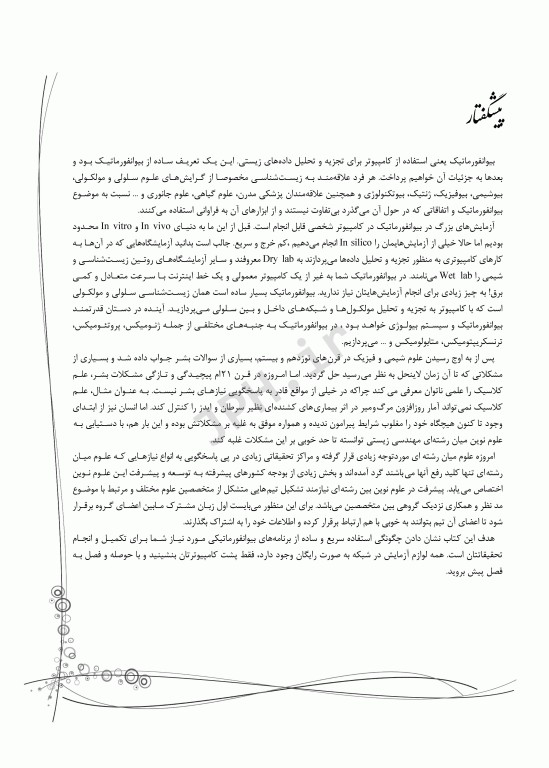 پیشگفتار
بیوانفورماتیک یعنی استفاده از کامپیوتر برای تجزیه و تحلیل داده‌های زیستی. این یک تعریف ساده از بیوانفورماتیک بود و
بعدها به جزئیات آن خواهیم پرداخت. هر فرد علاقه‌مند به زیست‌شناسی مخصوصا از گرایش‌های علوم سلولی و مولکولی،
بیوشیمی، بیوفیزیک، ژنتیک، بیوتکنولوژی و همچنین علاقه‌مندان پزشکی مدرن، علوم گیاهی، علوم جانوری و ... نسبت به موضوع
بیوانفورماتیک و اتفاقاتی که در حول آن می‌گذرد بی‌تفاوت نیستند و از ابزارهای آن به فراوانی استفاده می‌کنند.
آزمایش‌های بزرگ در بیوانفورماتیک در کامپیوتر شخصی قابل انجام است. قبل از این ما به دنیای In vivo و In vitro محدود
بودیم اما حالا خیلی از آزمایش‌هایمان را In silico انجام می‌دهیم ،کم خرج و سریع. جالب است بدانید آزمایشگاه‌هایی که در آن‌ها به
کارهای کامپیوتری به منظور تجزیه و تحلیل داده‌ها می‌پردازند به Dry lab معروفند و سایر آزمایشگاه‌های روتین زیست‌شناسی و
شیمی را Wet lab می‌نامند. در بیوانفورماتیک شما به غیر از یک کامپیوتر معمولی و یک خط اینترنت با سرعت متعادل و کمی
برق! به چیز زیادی برای انجام آزمایش‌هایتان نیاز ندارید. بیوانفورماتیک بسیار ساده است همان زیست‌شناسی سلولی و مولکولی
است که با کامپیوتر به تجزیه و تحلیل مولکول‌ها و شبکه‌های داخل و بین سلولی می‌پردازید. آینده در دستان قدرتمند
بیوانفورماتیک و سیستم بیولوژی خواهد بود ، در بیوانفورماتیک به جنبه‌های مختلفی از جمله ژنومیکس، پروتئومیکس،
ترنسکریپتومیکس، متابولومیکس و ... می‌پردازیم.
پس از به اوج رسیدن علوم شیمی و فیزیک در قرن‌های نوزدهم و بیستم، بسیاری از سوالات بشر جواب داده شد و بسیاری از
مشکلاتی که تا آن زمان لاینحل به نظر می‌رسید حل گردید. اما امروزه در قرن ۲۱ام پیچیدگی و تازگی مشکلات بشر، علم
کلاسیک را علمی ناتوان معرفی می کند چراکه در خیلی از مواقع قادر به پاسخگویی نیازهای بشر نیست. به عنوان مثال، علم
کلاسیک نمی‌تواند آمار روزافزون مرگ‌ومیر در اثر بیماری‌های کشنده‌ای نظیر سرطان و ایدز را کنترل کند. اما انسان نیز از ابتدای
وجود تا کنون هیچگاه خود را مغلوب شرایط پیرامون ندیده و همواره موفق به غلبه بر مشکلاتش بوده و این بار هم، با دستیابی به
علوم نوین میان رشته‌ای مهندسی زیستی توانسته تا حد خوبی بر این مشکلات غلبه کند.
امروزه علوم میان رشته ای موردتوجه زیادی قرار گرفته و مراکز تحقیقاتی زیادی در پی پاسخگویی به انواع نیازهایی که علوم میان
رشته‌ای تنها کلید رفع آنها می‌باشند گرد آمده‌اند و بخش زیادی از بودجه کشورهای پیشرفته به توسعه و پیشرفت این علوم نوین
اختصاص می‌یابد. پیشرفت در علوم نوین بین رشته‌ای نیازمند تشکیل تیم‌هایی متشکل از متخصصین علوم مختلف و مرتبط با موضوع
مد نظر و همکاری نزدیک گروهی بین متخصصین می‌باشد. برای این منظور می‌بایست اول زبان مشترک مابین اعضای گروه برقرار
شود تا اعضای آن تیم بتوانند به خوبی با هم ارتباط برقرار کرده و اطلاعات خود را به اشتراک بگذارند.
هدف این کتاب نشان دادن چگونگی استفاده سریع و ساده از برنامه‌های بیوانفورماتیکی مورد نیاز شما برای تکمیل و انجام
تحقیقاتتان است. همه لوازم آزمایش در شبکه به صورت رایگان وجود دارد، فقط پشت کامپیوترتان بنشینید و با حوصله و فصل به
فصل پیش بروید.